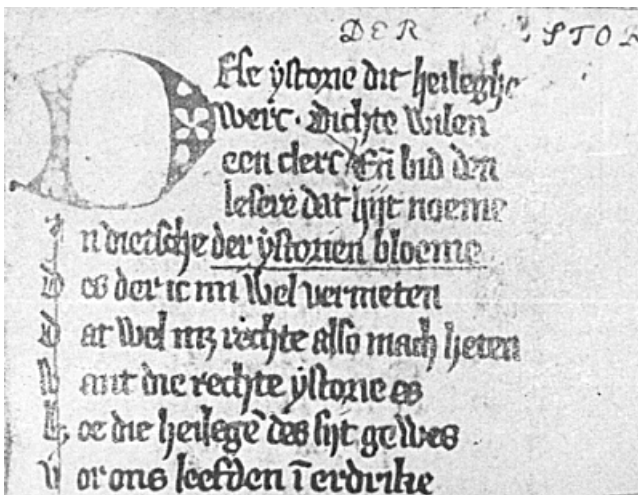 DER ISTOR
Dese ystorie dit heileghe
werc · Dichte wilen
een clerc En̄ bid den
lesere dat hijt noeme
In dietsche der ystorien bloeme
des der ic mi wel vermeten
dat wel mꝫ rechte also mach heten
want die rechte ystorie es
hoe die heilege̅ des sijt gewes
vor ons leefden i̅ erdrike